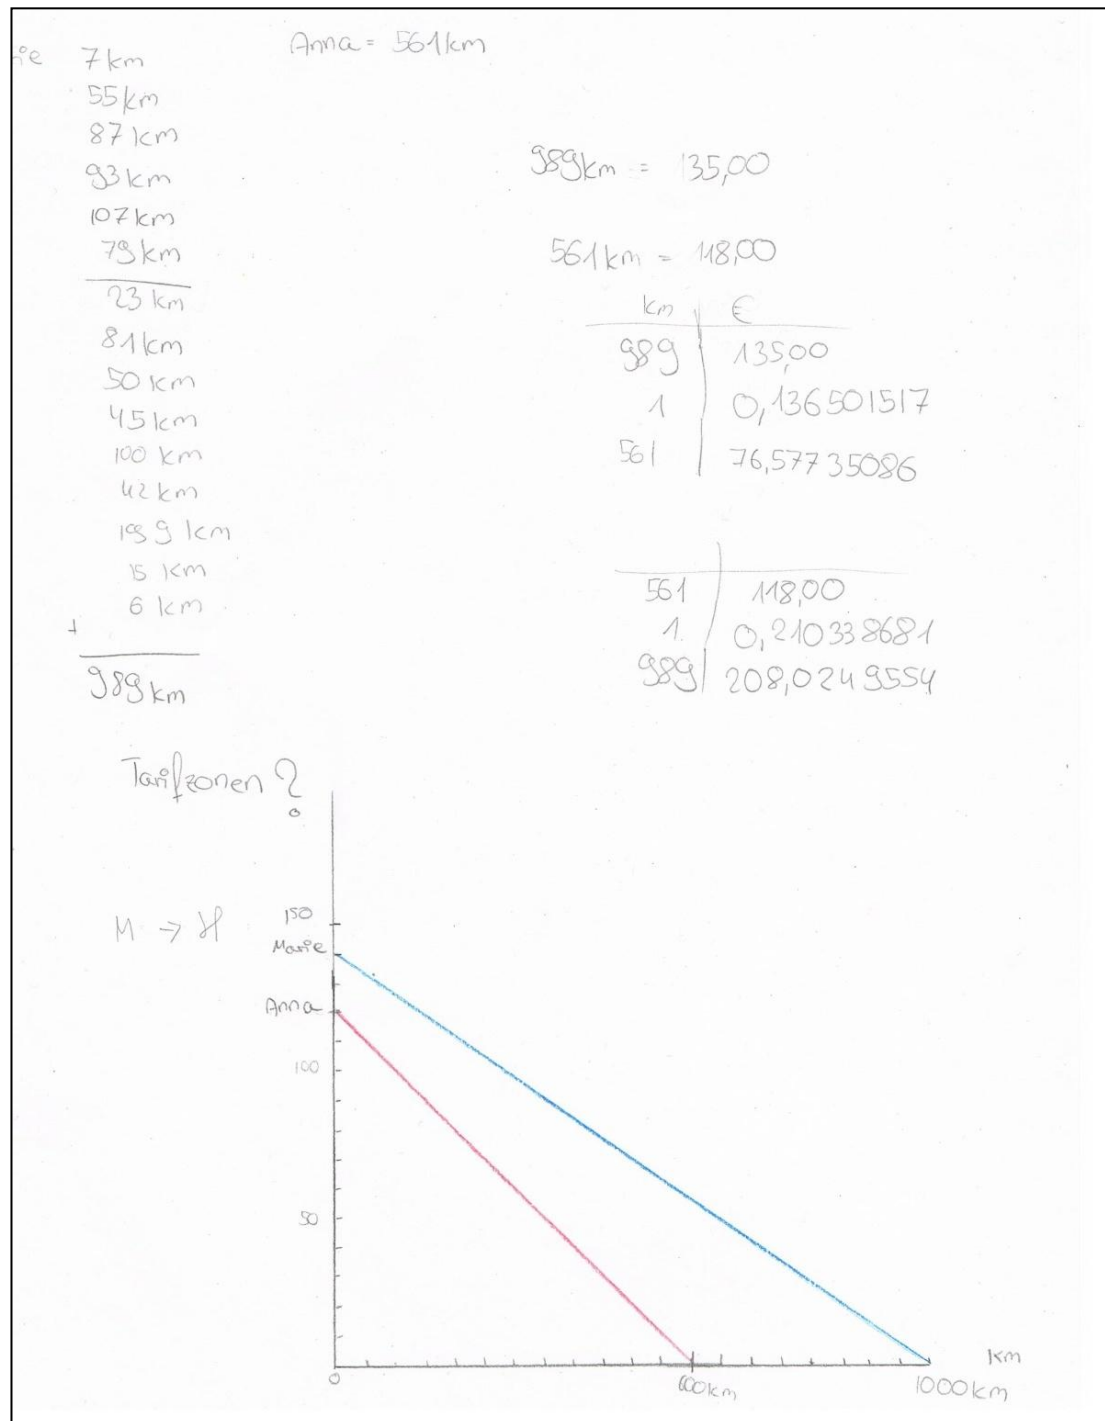 ie 7 km Anna = 561 km
55 km
87 km
93 km
107 km
79 km
23 km
81 km
50 km
45 km
100 km
42 km
199 km
15 km
6 km
+
989 km
989 km = 135,00
561 km = 118,00
km €
989 135,00
1 0,136501517
561 76,57735086
561 118,00
1. 0,210338681
989 208,0249554
Tarifzonen ?
M → H
150
Marie
Anna
100
50
0 600km 1000km
km